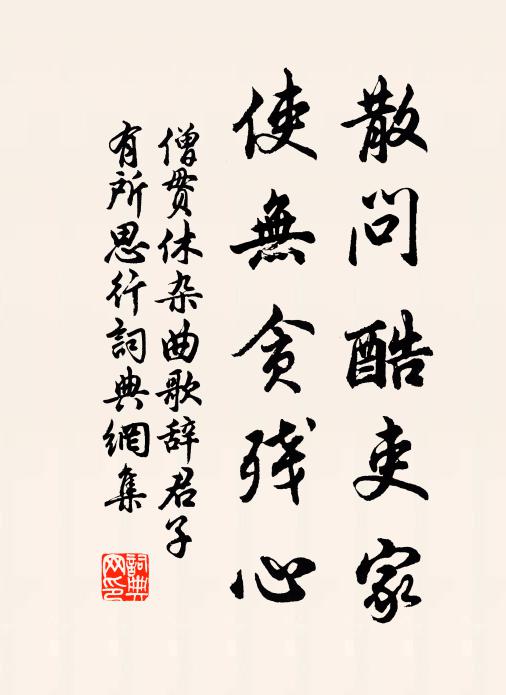 散問酷吏家
使無貪殘心
僧贯休杂曲歌辞君子
有所思行詞典網集
詞典
网印